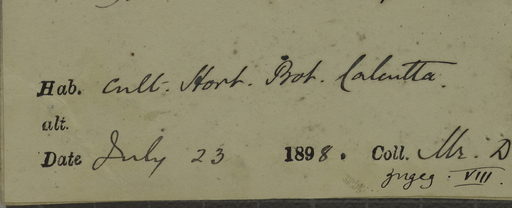 Hab. Cult. Hort. Bot. Calcutta.
alt.
Date July 23 1898. Coll. Mr. D
VIII.